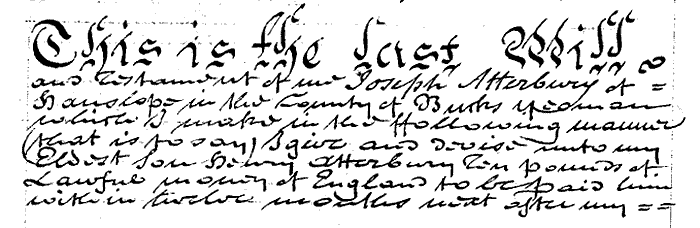 This is the last Will
and Testament of me Joseph Atterbury of =
Hanslope in the County of Bucks Yeoman
which I make in the following manner
(that is to say) I give and devise unto my
Eldest Son Henry Atterbury Ten pounds of
Lawful money of England to be paid him
within twelve months next after my = =